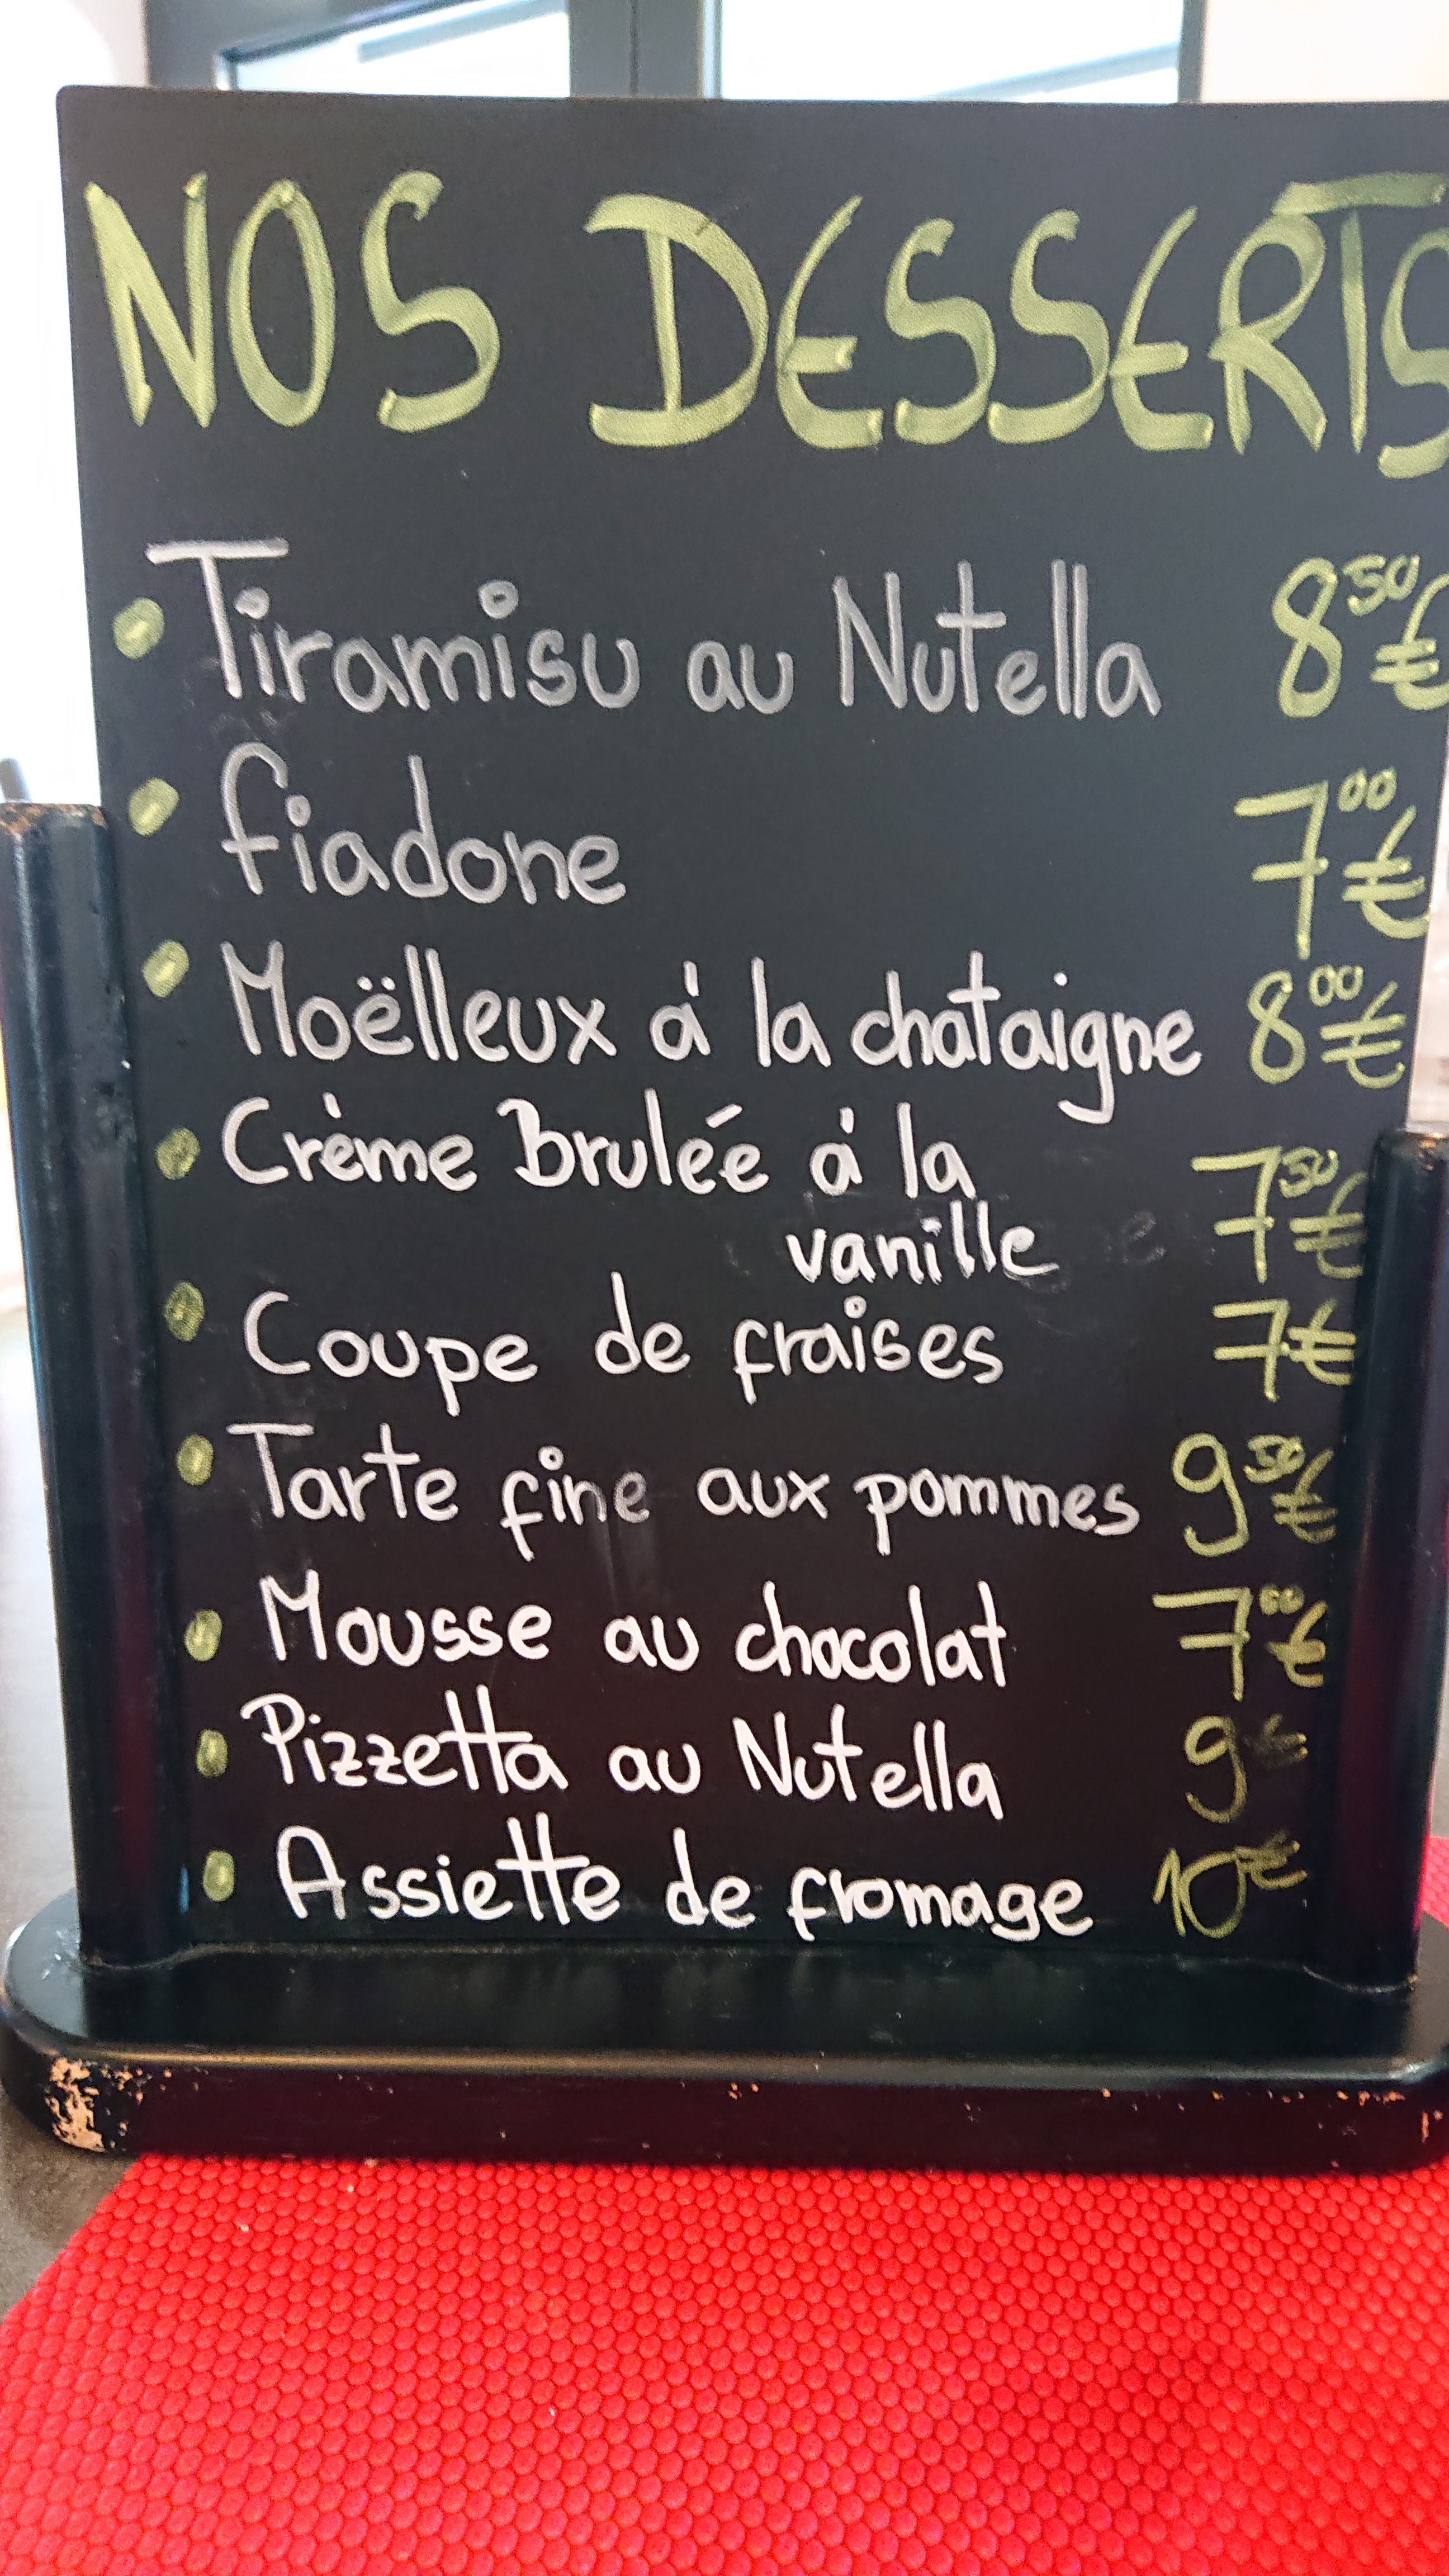 NOS DESSERTS
• Tiramisu au Nutella 8⁵⁰€
• fiadone 7⁰⁰€
• Moëlleux à la chataigne 8⁰⁰€
• Crème Bruléé à la
vanille 7⁵⁰€
• Coupe de fraises 7€
• Tarte fine aux pommes 9⁵⁰€
• Mousse au chocolat 7⁰⁰€
• Pizzetta au Nutella 9€
• Assiette de fromage 10€